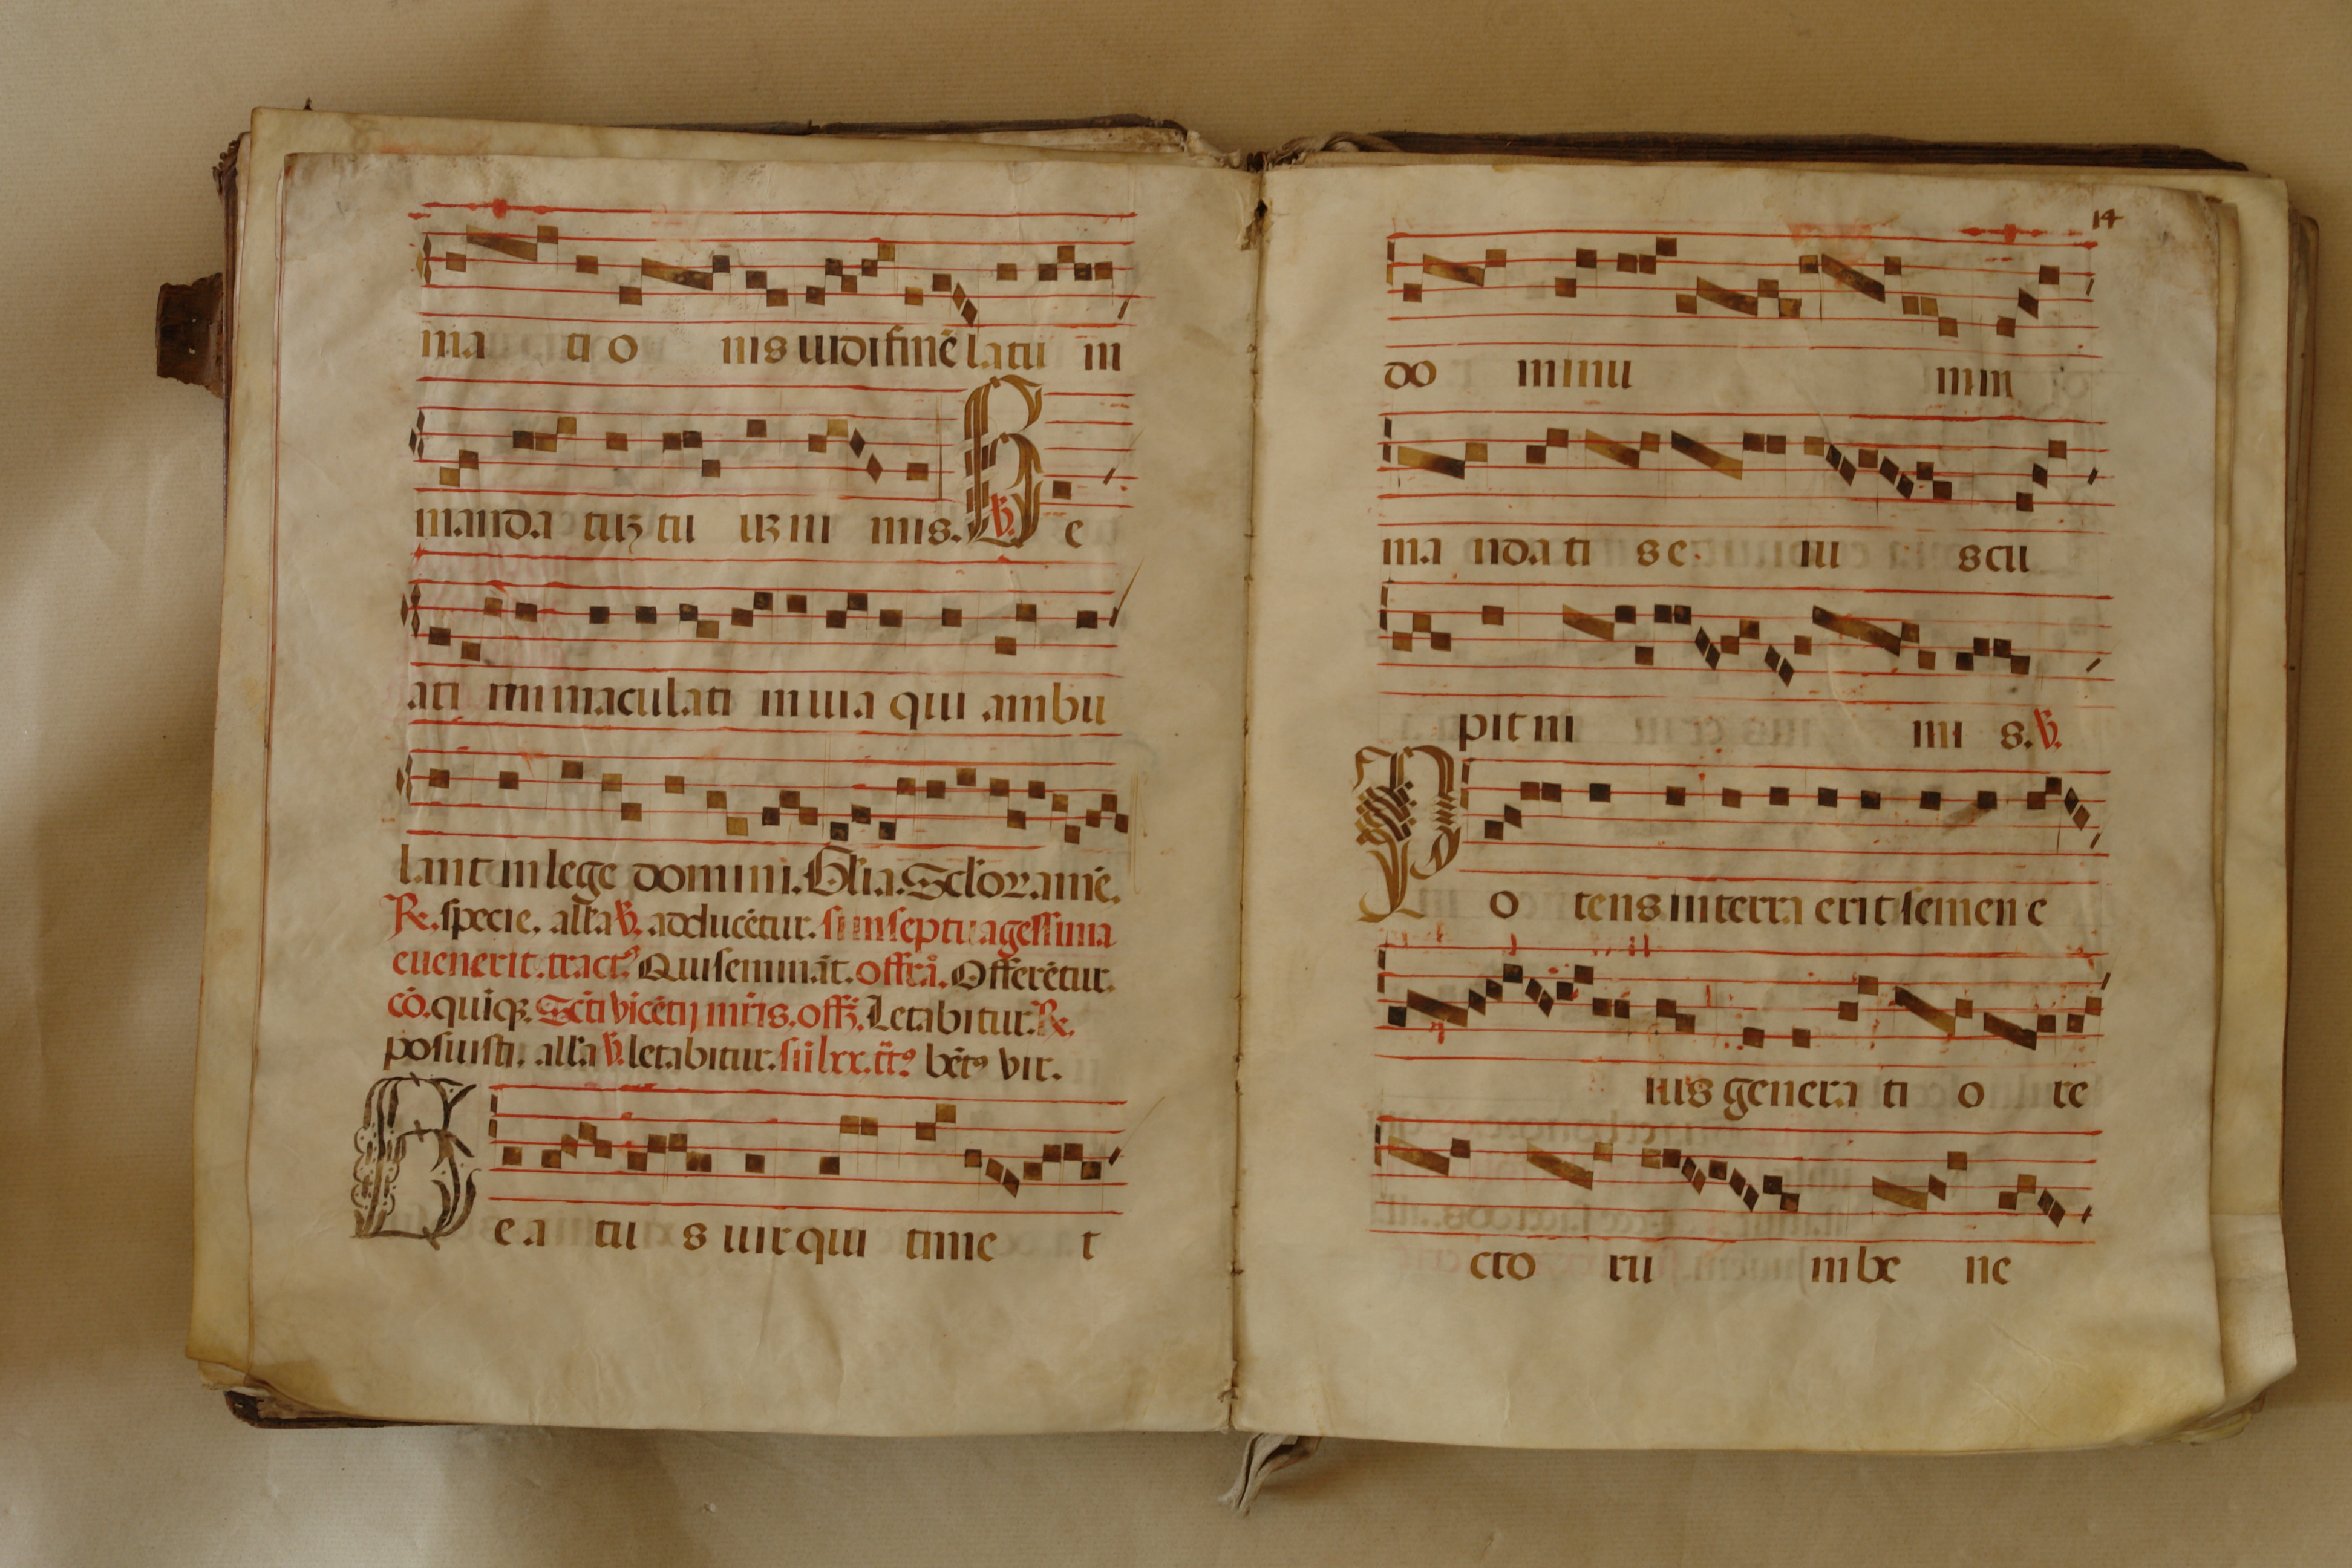 ma ti o nis uidi finē latū m
manda tuʒ tu uʒ ni mis. ℣. B e
ati immaculati in uia qui ambu
lant in lege domini. Gl̄ia. Sc̄lor. amē.
℟. specie. all̄a ℣. adducētur. si in septuagessima
euenerit. tractꝰ Qui semināt. offr̄a. Offerētur.
cō. quiqꝫ. Sc̄ti vicētij mr̄is. off̄. Letabitur. ℟.
posuisti. all̄a ℣. letabitur. si ī lxx. tr̄tꝰ bēt᷒ vir.
B e a tu s uir qui time t
14
do minu m in
ma nda ti s e iu s cu
pit ni mi s. ℣.
P o tens in terra erit semen e
ius genera ti o re
cto ru m be ne